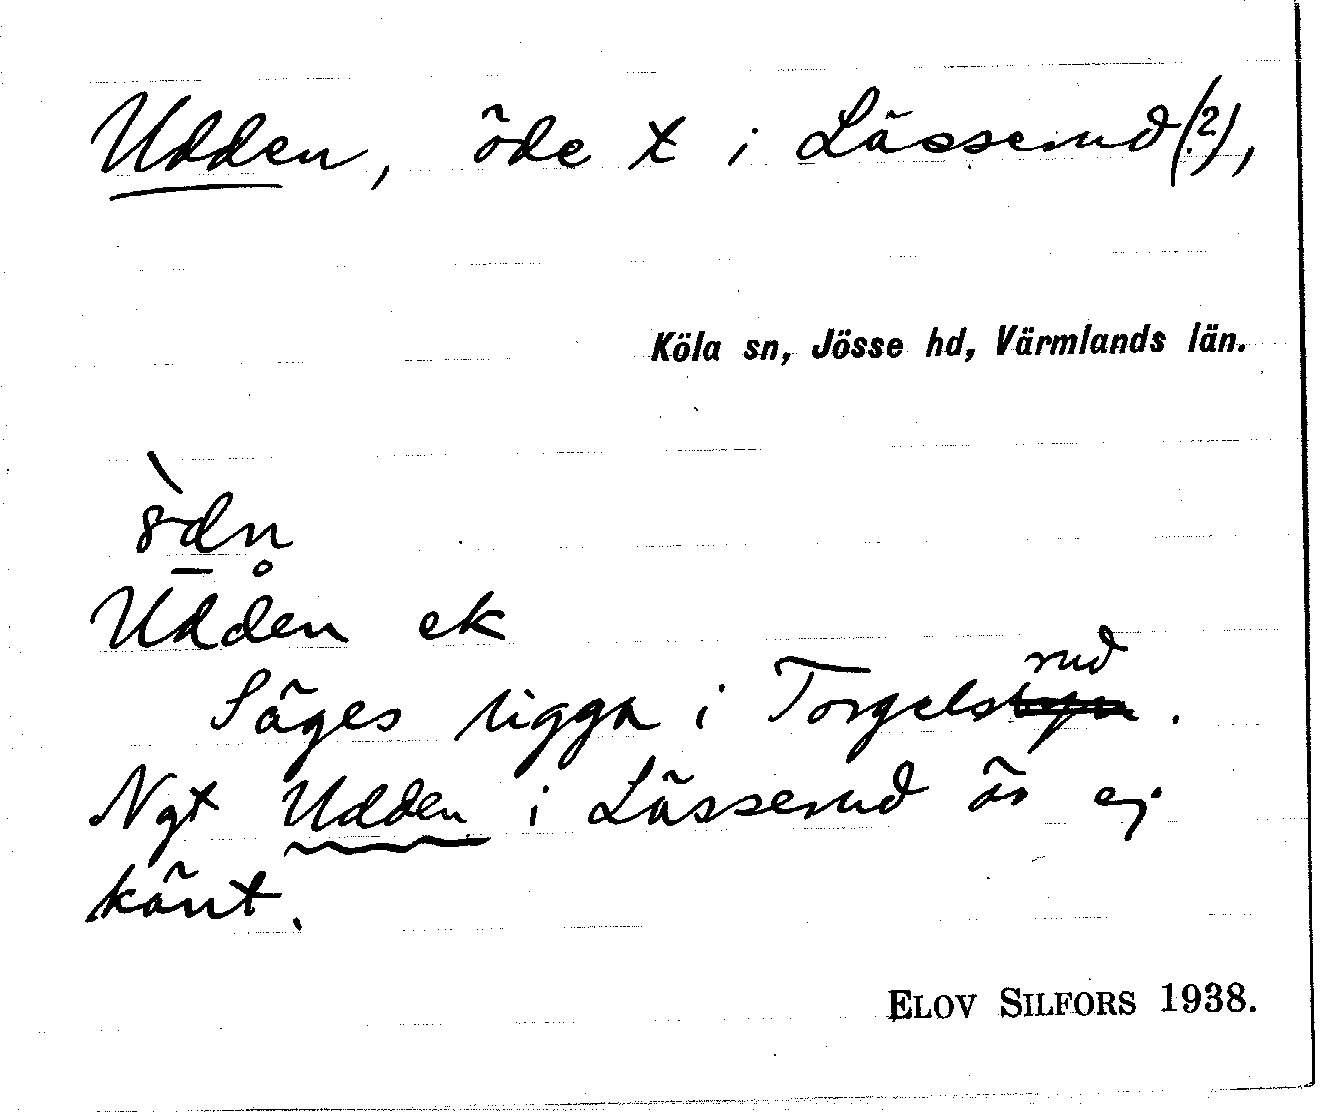 Udden, öde t i Lässerud(?),
Köla sn, Jösse hd, Värmlands län.
Udden ek
Säges ligga i Torgelsrud.
Ngt Udden i Lässerud är ej
känt.
ELOV SILFORS 1938.